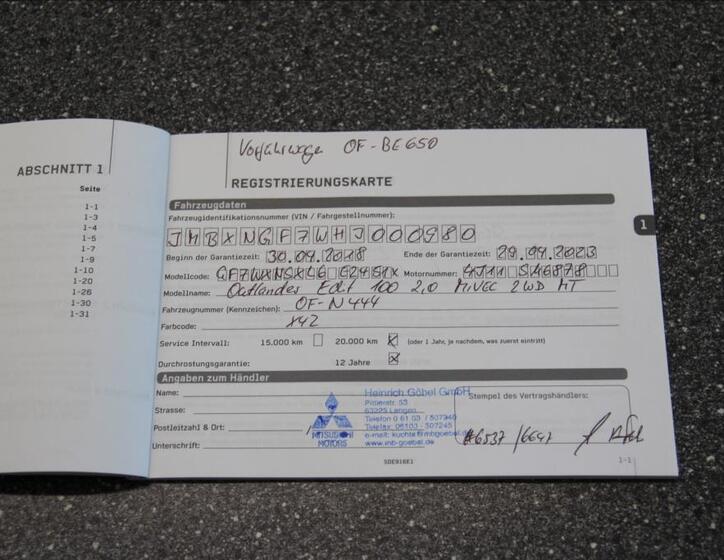 ABSCHNITT 1
Seite
1-1
1-3
1-4
1-5
1-7
1-9
1-10
1-20
1-26
1-30
1-31
Vorführwagen OF-BE650
REGISTRIERUNGSKARTE
Fahrzeugdaten
1
Fahrzeugidentifikationsnummer (VIN / Fahrgestellnummer):
JMBXNGF7WHJ000980
Beginn der Garantiezeit: 30.09.2018 Ende der Garantiezeit: 29.09.2023
Modellcode: Motornummer: 4J11
Modellname: Outlander Edit 100 2,0 MIVEC 2WD MT
Fahrzeugnummer (Kennzeichen): OF-N444
Farbcode: X42
Service Intervall: 15.000 km 20.000 km (oder 1 Jahr, je nachdem, was zuerst eintritt)
Durchrostungsgarantie: 12 Jahre
Angaben zum Händler
Name:
Strasse:
Postleitzahl & Ort:
Unterschrift:
MITSUBISHI
MOTORS
Heinrich Göbel GmbH
Pittlerstr. 53
63225 Langen
Telefon 0 61 03 / 507340
Telefax: 06103 - 507245
www.mb-goebel.de
Stempel des Vertragshändlers:
#6537 / 6647
SDE918E1
1-1